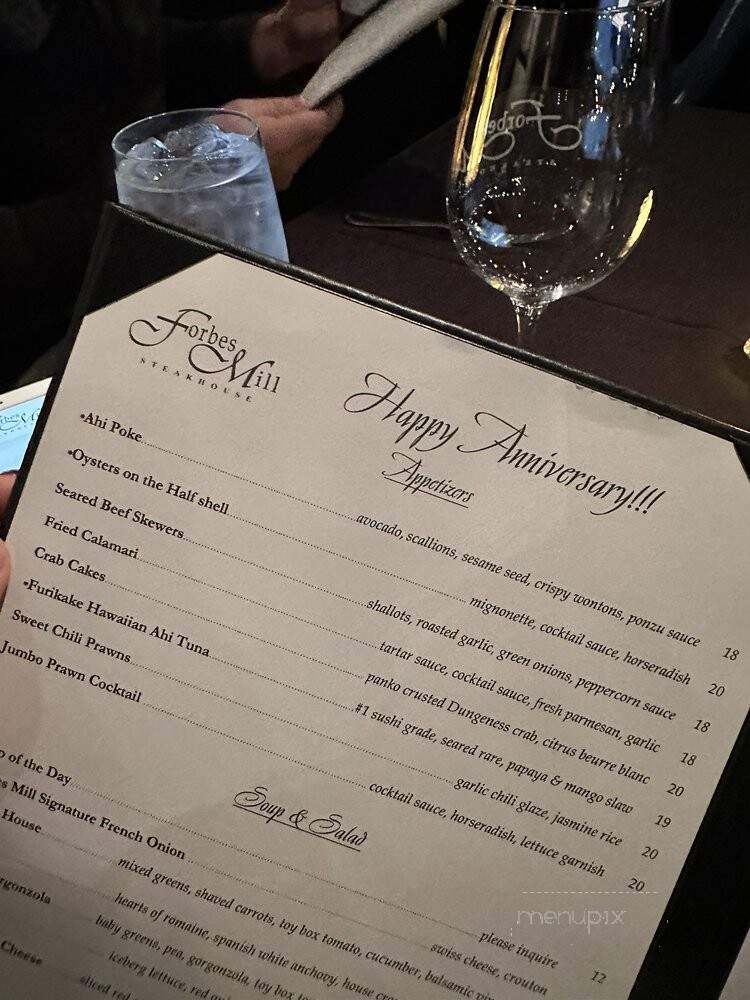 Forbes
Mill
STEAKHOUSE
Happy Anniversary!!!
Appetizers
*Ahi Poke avocado, scallions, sesame seed, crispy wontons, ponzu sauce 18
*Oysters on the Half shell mignonette, cocktail sauce, horseradish 20
Seared Beef Skewers shallots, roasted garlic, green onions, peppercorn sauce 18
Fried Calamari tartar sauce, cocktail sauce, fresh parmesan, garlic 18
Crab Cakes panko crusted Dungeness crab, citrus beurre blanc 20
*Furikake Hawaiian Ahi Tuna #1 sushi grade, seared rare, papaya & mango slaw 19
Sweet Chili Prawns garlic chili glaze, jasmine rice 20
Jumbo Prawn Cocktail cocktail sauce, horseradish, lettuce garnish 20
Soup & Salad
p of the Day please inquire
es Mill Signature French Onion swiss cheese, crouton 12
House mixed greens, shaved carrots, toy box tomato, cucumber, balsamic
hearts of romaine, spanish white anchovy, house
rgonzola baby greens, pea, gorgonzola, toy box
iceberg lettuce, red
Cheese sliced red
menupix